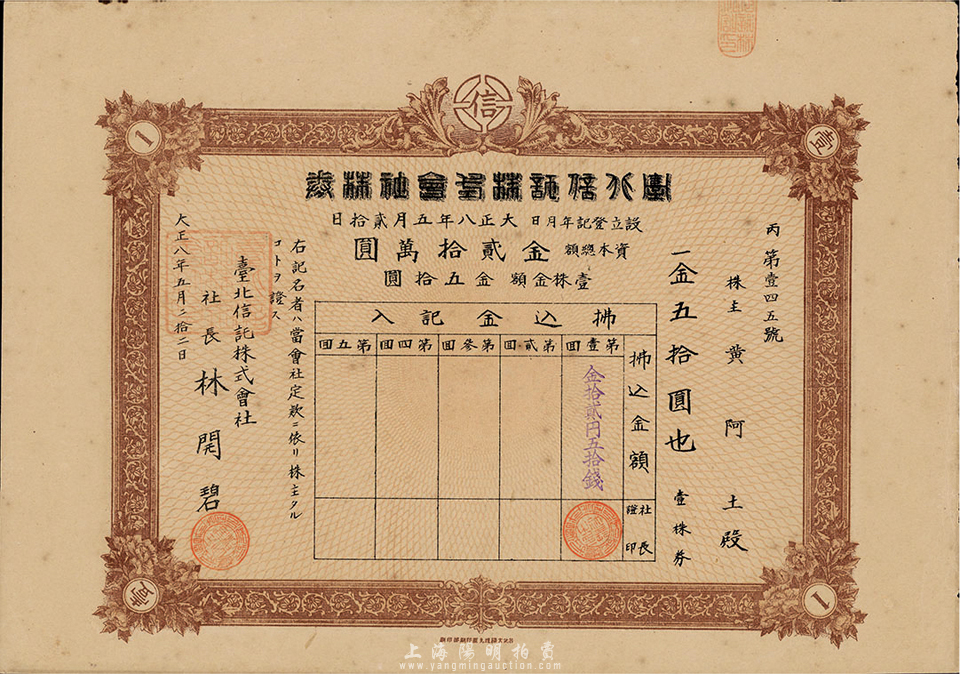 信
臺北信託株式會社株券
設立登記年月日 大正八年五月貳拾日
資本總額 金貳拾萬圓
壹株金額 金五拾圓
丙第壹四五號
株主 黃阿土殿
一金五拾圓也 壹株券
拂込金記入
拂込金額
社長證印
第壹回
第貳回
第參回
第四回
第五回
金拾貳円五拾錢
右記名者ハ當會社定款ニ依リ株主タル
コトヲ證ス
臺北信託株式會社
社長 林開碧
大正八年五月二拾二日
1
壹
壹
1
上海陽明拍賣
www.yangmingauction.com